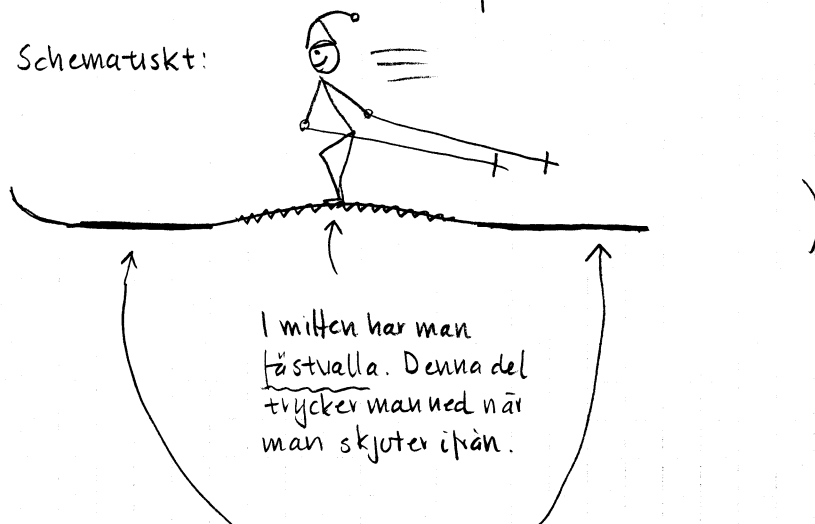 Schematiskt:
I mitten har man
fästvalla. Denna del
trycker man ned när
man skjuter ifrån.